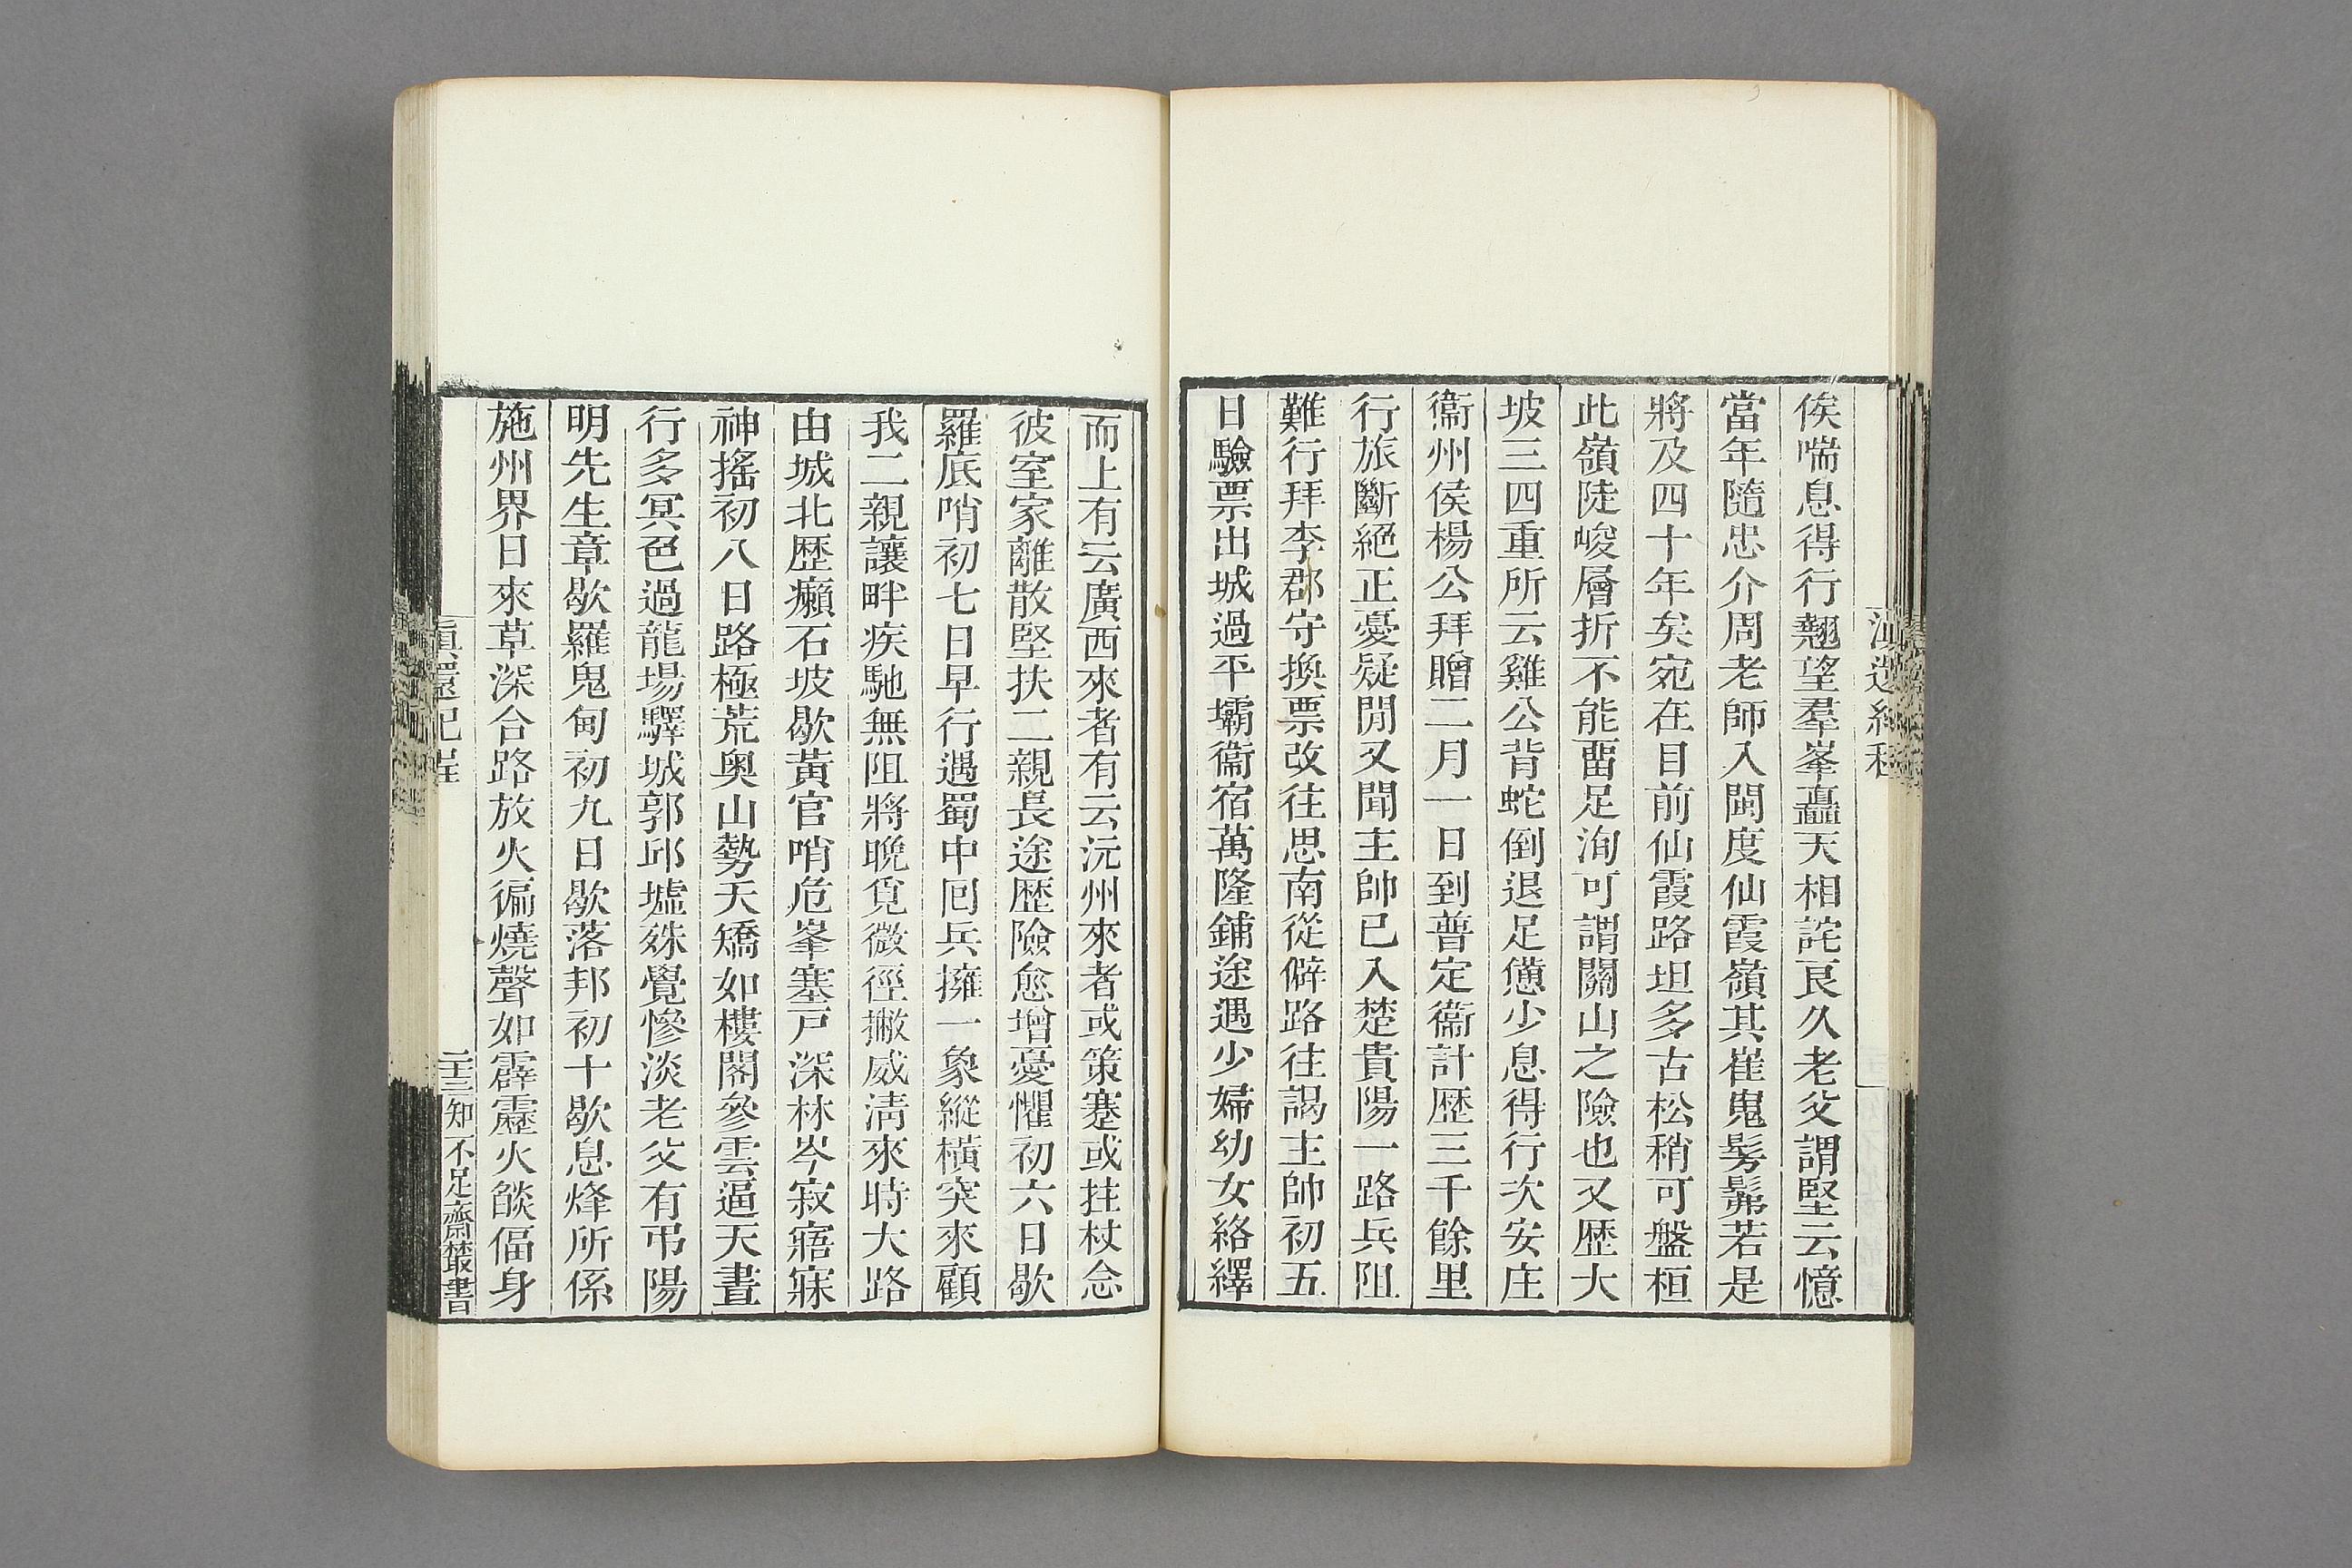 滇還紀程
俟喘息得行翹望羣峯矗天相詫良久老父謂堅云憶
當年隨忠介周老師入閩度仙霞嶺其崔嵬髣髴若是
將及四十年矣宛在目前仙霞路坦多古松稍可盤桓
此嶺陡峻層折不能畱足洵可謂關山之險也又歷大
坡三四重所云雞公背蛇倒退足憊少息得行次安庄
衞州侯楊公拜贈二月一日到普定衞計歷三千餘里
行旅斷絕正憂疑閒又聞主帥已入楚貴陽一路兵阻
難行拜李郡守換票改往思南從僻路往謁主帥初五
日驗票出城過平壩衞宿萬隆鋪途遇少婦幼女絡繹
而上有云廣西來者有云沅州來者或策蹇或拄杖念
彼室家離散堅扶二親長途歷險愈增憂懼初六日歇
羅底哨初七日早行遇蜀中囘兵擁一象縱橫突來顧
我二親讓畔疾馳無阻將晚覓微徑撇威清來時大路
由城北歷癩石坡歇黃官哨危峯塞戸深林岑寂寤寐
神搖初八日路極荒奥山勢天矯如樓閣參雲逼天晝
行多冥色過龍場驛城郭邱墟殊覺慘淡老父有弔陽
明先生章歇羅鬼甸初九日歇落邦初十歇息烽所係
施州界日來草深合路放火徧燒聲如霹靂火燄偪身
滇還記程
二十三知不足齋叢書